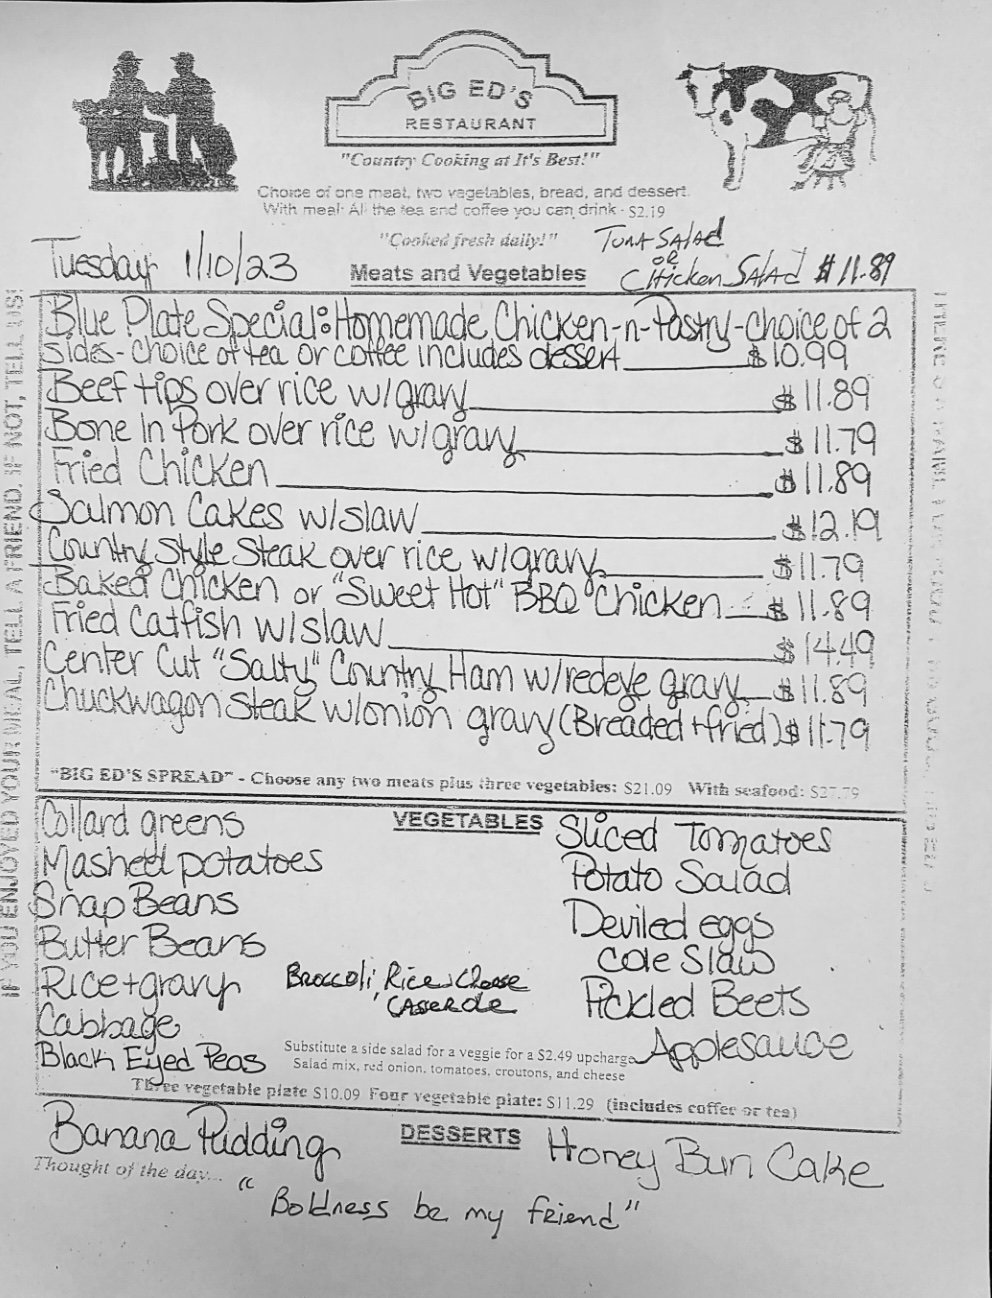 BIG ED'S
RESTAURANT
"Country Cooking at It's Best!"
Choice of one meat, two vegetables, bread, and dessert.
With meal: All the tea and coffee you can drink - $2.19
"Cooked fresh daily!"
Tuna Salad
or
Chicken Salad $11.89
Tuesday 1/10/23
Meats and Vegetables
Blue Plate Special: Homemade Chicken-n-Pastry-choice of 2
sides- choice of tea or coffee includes dessert $10.99
Beef tips over rice w/gravy $11.89
Bone In Pork over rice w/gravy $11.79
Fried Chicken $11.89
Salmon Cakes w/slaw $12.19
Country Style Steak over rice w/gravy $11.79
Baked Chicken or "Sweet Hot" BBQ Chicken $11.89
Fried Catfish w/slaw $14.49
Center Cut "Salty" Country Ham w/redeye gravy $11.89
Chuckwagon Steak w/onion gravy (Breaded + fried) $11.79
"BIG ED'S SPREAD" - Choose any two meats plus three vegetables: $21.09 With seafood: $27.79
VEGETABLES
Collard greens
Mashed potatoes
Snap Beans
Butter Beans
Rice + gravy
Cabbage
Black Eyed Peas
Broccoli, Rice, Cheese
Casserole
Sliced Tomatoes
Potato Salad
Deviled eggs
Cole Slaw
Pickled Beets
Applesauce
Substitute a side salad for a veggie for a $2.49 upcharge
Salad mix, red onion, tomatoes, croutons, and cheese
Three vegetable plate $10.09 Four vegetable plate: $11.29 (includes coffee or tea)
DESSERTS
Banana Pudding
Honey Bun Cake
Thought of the day...
"Boldness be my friend"
IF YOU ENJOYED YOUR MEAL, TELL A FRIEND. IF NOT, TELL US!